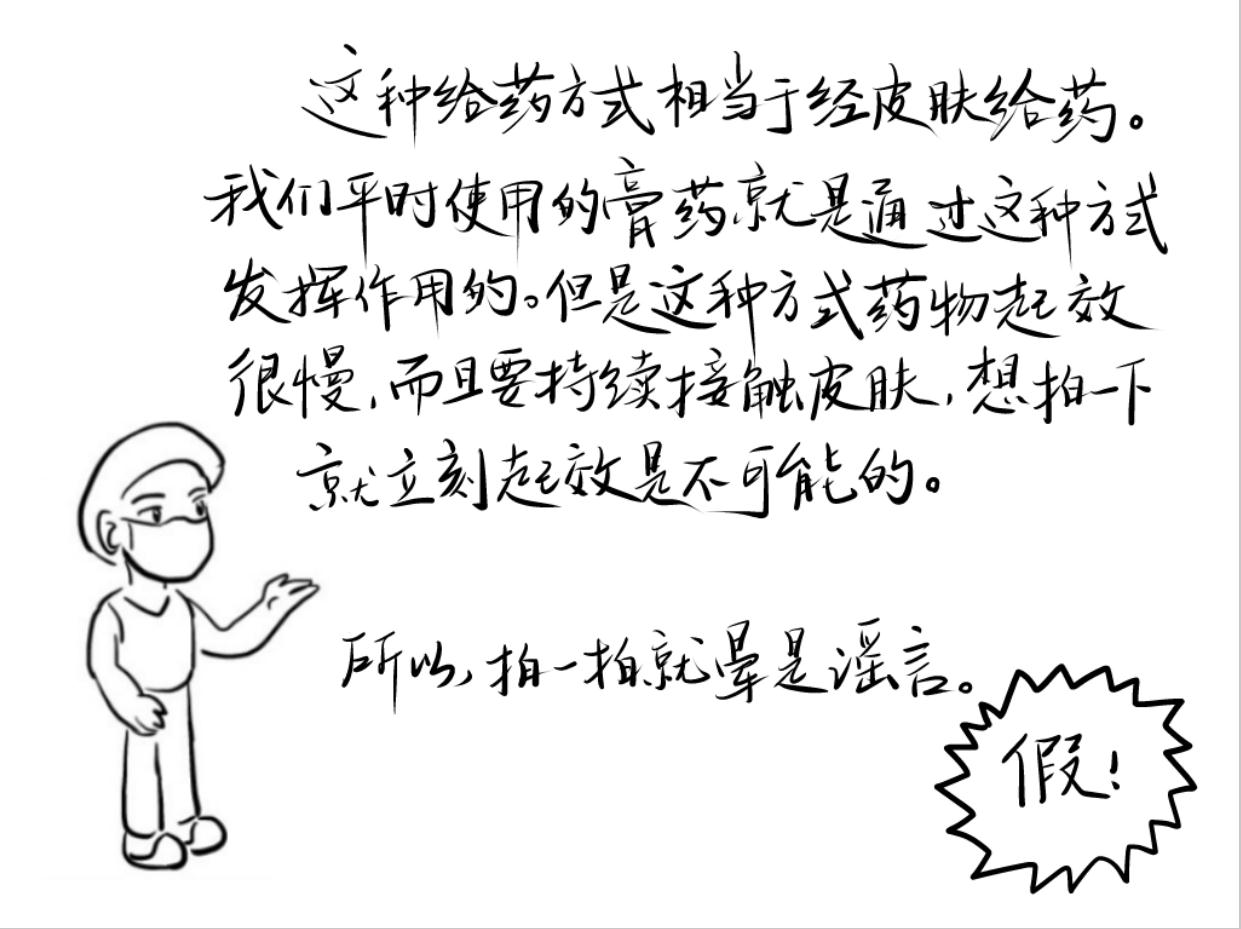 这种给药方式相当于经皮肤给药。
我们平时使用的膏药就是通过这种方式
发挥作用的。但是这种方式药物起效
很慢，而且要持续接触皮肤，想拍一下
就立刻起效是不可能的。
所以，拍一拍就晕是谣言。
假！